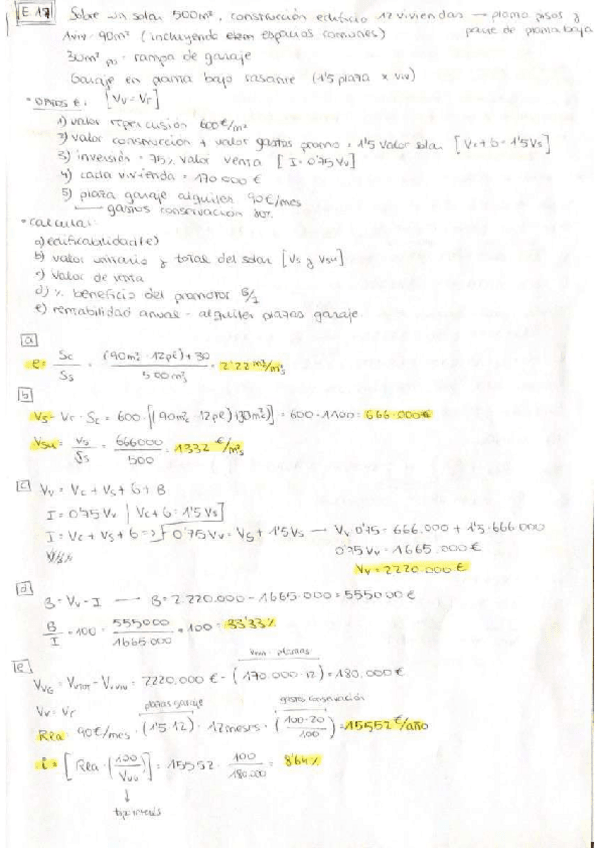 E 17 Sobre un solar 500m², construcción edificio 12 viviendas → planta pisos y parte de planta baja
1viv = 90m² (incluyendo elem espacios comunes)
30m² PB - rampa de garaje
Garaje en planta bajo rasante (1'5 plaza x viv)
• [Vv = Vr]
1) valor repercusión 600€/m²
2) valor construcción + valor gastos promo = 1'5 valor solar [Vc+b = 1'5Vs]
3) inversión = 75% valor venta [I = 0'75Vv]
4) cada vivienda = 170 000 €
5) plaza garaje alquiler 90€/mes
→ gastos conservación 20%
• calcular:
a) edificabilidad (e)
b) valor unitario y total del solar [Vs y Vsu]
c) Valor de venta
d) % beneficio del promotor B/I
e) rentabilidad anual - alquiler plazas garaje
a
e = Sc/Ss = (90m² · 12)+30 / 500m² = 2'22 m²/m²s
b
Vs = Vr · Sc = 600 · [(90m² · 12)+30m²)] = 600 · 1100 = 666.000€
Vsu = Vs/Ss = 666000/500 = 1332 €/m²s
c Vv = Vc + Vs + G + B
I = 0'75 Vv | Vc + G = 1'5 Vs
I = Vc + Vs + G => 0'75 Vv = Vs + 1'5 Vs → Vv 0'75 = 666.000 + 1'5 · 666.000
0'75 Vv = 1665.000€
Vv = 2220.000 €
d
B = Vv - I → B = 2.220.000 - 1665.000 = 555000 €
B/I = 100 · 555000/1665.000 · 100 = 33'33%
e
VvG = Vvtot - Vvviv = 2220.000 € - (170 000 · 12) = 180.000€
Vv = Vr plazas garaje gastos conservación
Rea = 90€/mes · (1'5 · 12) · 12meses · (100-20/100) = 15552 €/año
i = [Rea · (100/Vvu)] = 15552 · 100/180.000 = 8'64%
tipo interés